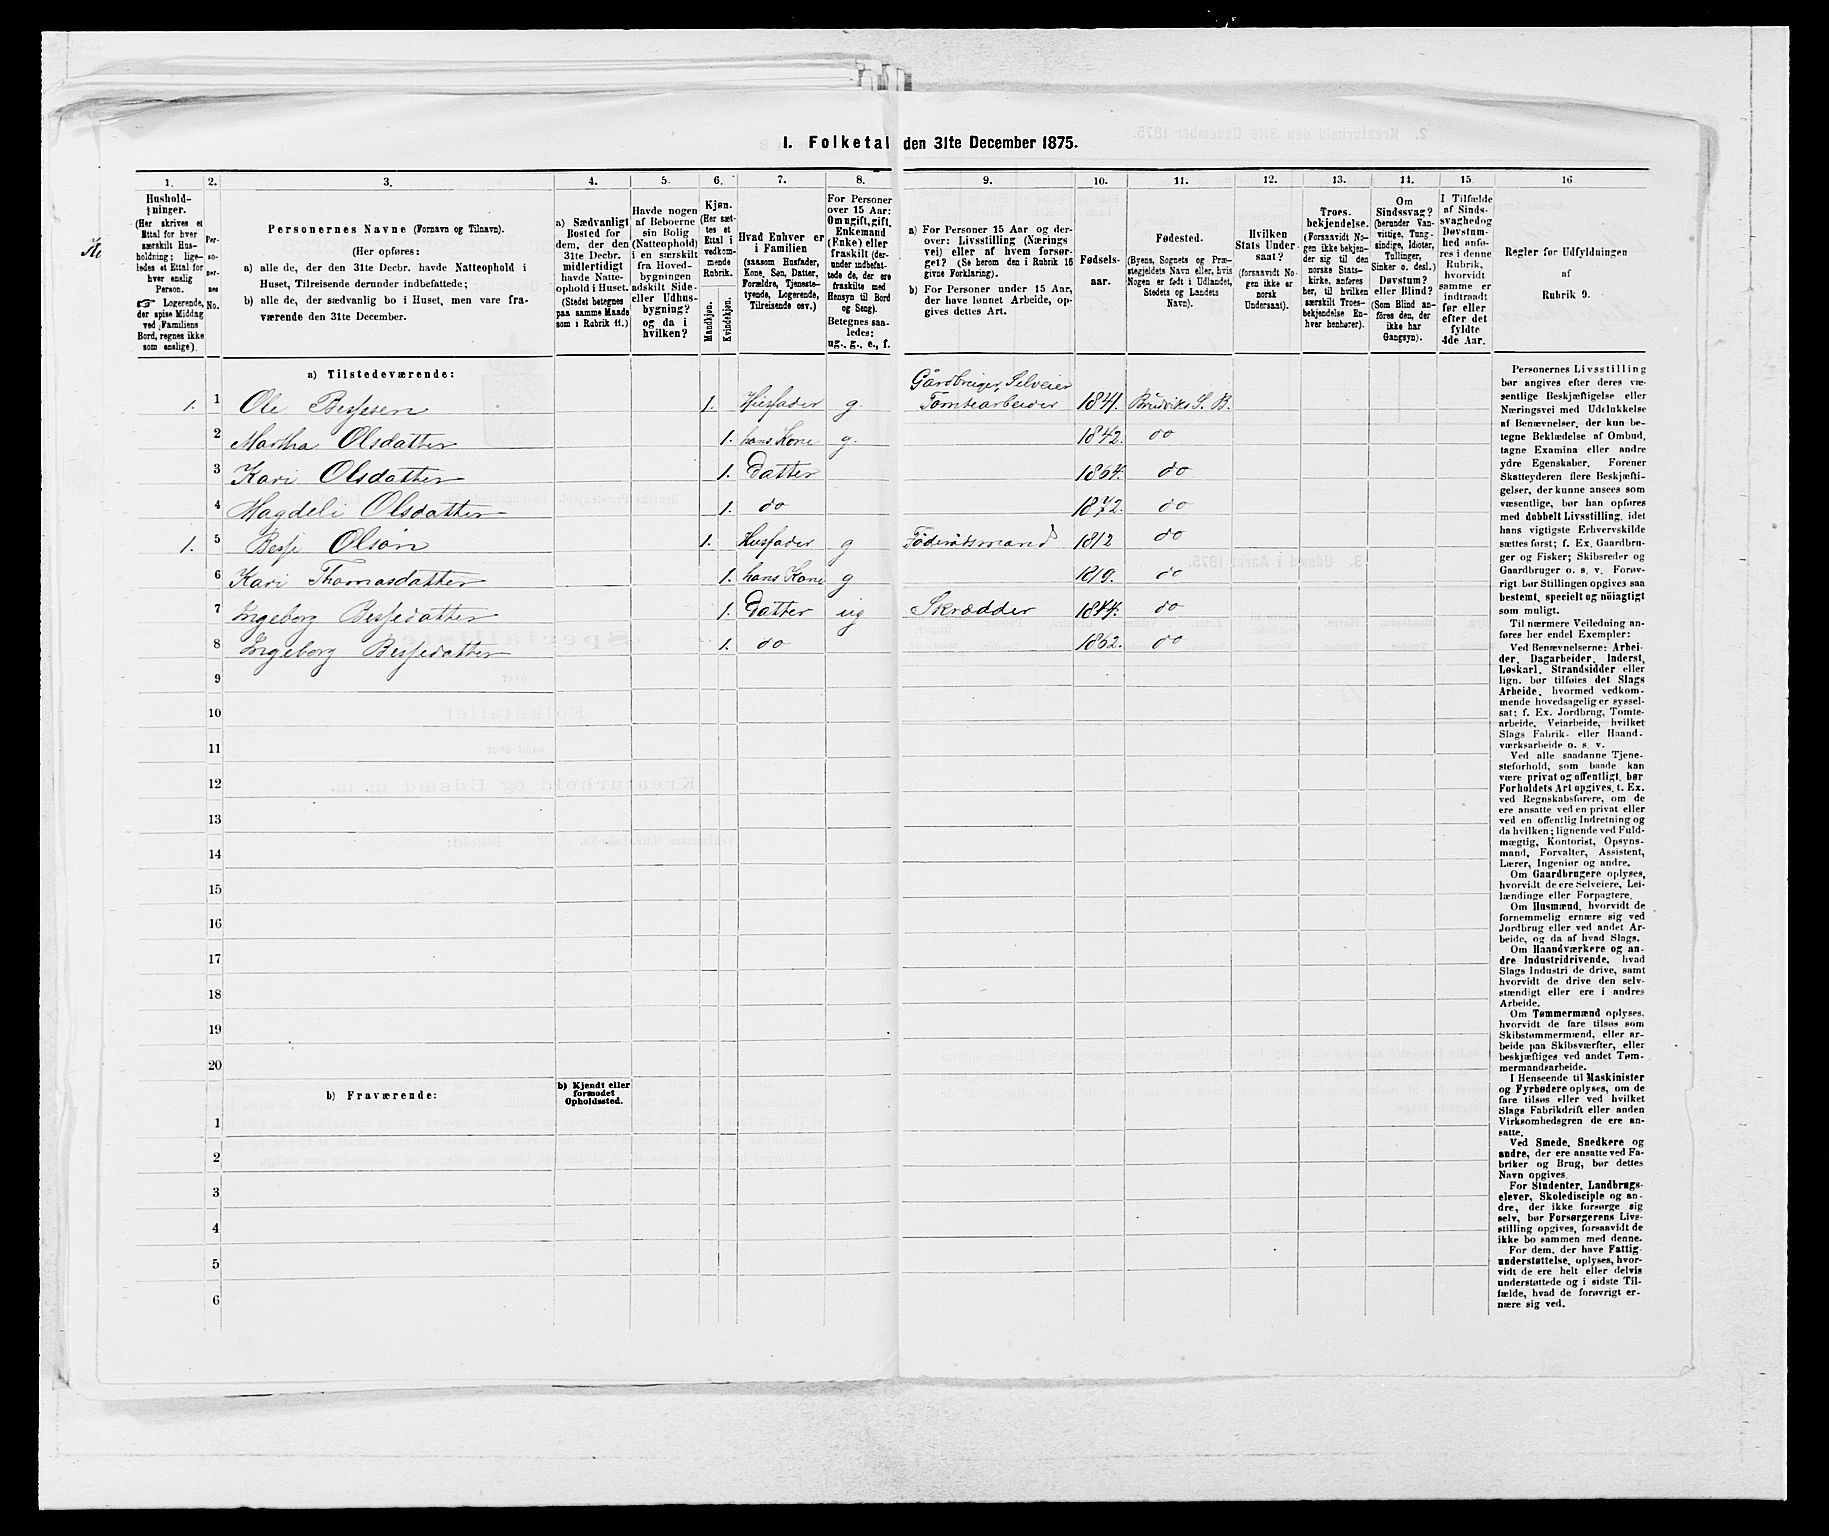 1. Folketal den 31te December 1875.
1. 2. 3. 4. 5. 6. 7. 8. 9. 10. 11. 12. 13. 14. 15. 16
Hushold-
ninger.
(Her skrives et
Ettal for hver
særskilt Hus-
holdning; lige-
ledes et Ettal for
hver enslig
Person.
☞ Logerende,
der spise Middag
ved Familiens
Bord, regnes ikke
som enslige).
Per-
so-
per-
nes
No.
Personernes Navne (Fornavn og Tilnavn).
(Her opføres:
a) alle de, der den 31te Decbr. havde Natteophold i
Huset, Tilreisende derunder indbefattede;
b) alle de, der sædvanlig bo i Huset, men vare fra-
værende den 31te December.
a) Sædvanligt
Bosted for
dem, der den
31te Decbr.
midlertidigt
havde Natte-
ophold i Huset.
(Stedet betegnes
paa samme Maade
som i Rubrik 11.)
Havde nogen
af Beboerne
sin Bolig
(Natteophold)
i en særskilt
fra Hoved-
bygningen
adskilt Side-
eller Udhus-
bygning?
og da i
hvilken?
Kjøn.
(Her sæt-
tes et
Ettal i
vedkom-
mende
Rubrik.
Mandkjøn.
Kvindekjøn.
Hvad Enhver er
i Familien
(saasom Husfader,
Kone, Søn, Datter,
Forældre, Tjeneste-
tyende, Logerende,
Tilreisende osv.)
For Personer
over 15 Aar:
Om ugift, gift,
Enkemand
(Enke) eller
fraskilt (der-
under indbefat-
tede de, der ere
fraskilte med
Hensyn til Bord
og Seng).
Betegnes saa-
ledes:
ug., g., e., f.
a) For Personer 15 Aar og der-
over: Livsstilling (Nærings
vei) eller af hvem forsør-
get? (Se herom den i Rubrik 16
givne Forklaring).
b) For Personer under 15 Aar,
der have lønnet Arbeide, op-
gives dettes Art.
Fødsels-
aar.
Fødested.
(Byens, Sognets og Præ-
stegjeldets Navn eller, hvis
Nogen er født i Udlandet,
Stedets og Landets
Navn).
Hvilken
Stats Under-
saat?
(forsaavidt No-
gen ikke er
norsk
Undersaat).
Troes-
bekjendelse.
(Forsaavidt No-
gen ikke bekjen-
der sig til den
norske Stats-
kirke, anføres
her, til hvilken
særskilt Troes-
bekjendelse En-
hver henhører).
Om
Sindssvag?
(herunder Van-
vittige, Tung-
sindige, Idioter,
Tullinger,
Sinker o. desl.)
Døvstum?
eller Blind?
(Som Blind an-
føres den, der
ikke har
Gangsyn).
I Tilfælde
af Sinds-
svaghed og
Døvstum-
hed anfø-
res i denne
Rubrik,
hvorvidt
samme er
indtraadt
før eller
efter det
fyldte
4de Aar.
Regler for Udfyldningen
af
Rubrik 9.
a) Tilstedeværende:
Gårdbruger, Selveier
1. 1 Ole Bessesen 1. Husfader g. Tomtearbeider 1841. Brudviks S. B.
2 Martha Olsdatter 1. hans Kone g. 1842. do
3 Kari Olsdatter 1. Datter 1864. do
4 Magdeli Olsdatter 1. do 1872. do
1. 5 Besse Olson 1. Husfader g Föderådsmand 1812 do
6 Kari Thomasdatter 1. hans Kone g 1819. do
7 Ingeborg Bessedatter 1. Datter ug Skrædder 1844. do
8 Ingeborg Bessedatter 1. do 1862. do
9
10
11
12
13
14
15
16
17
18
19
20
b) Fraværende:
b) Kjendt eller
formodet
Opholdssted.
1
2
3
4
5
6
Personernes Livsstilling
bør angives efter deres væ-
sentlige Beskjæftigelse eller
Næringsvei med Udelukkelse
af Benævnelser, der kun be-
tegne Beklædelse af Ombud,
tagne Examina eller andre
ydre Egenskaber. Forener
Skatteyderen flere Beskjæfti-
gelser, der kunne ansees som
væsentlige, bør han opføres
med dobbelt Livsstilling, idet
hans vigtigste Erhvervskilde
sættes først; f. Ex. Gaardbru-
ger og Fisker; Skibsreder og
Gaardbruger o. s. v. Forøv-
rigt bør Stillingen opgives saa
bestemt, specielt og nöiagtigt
som muligt.
Til nærmere Veiledning an-
føres her endel Exempler:
Ved Benævnelserne: Arbei-
der, Dagarbeider, Inderst,
Løskarl, Strandsidder eller
lign. bør tilføies det Slags
Arbeide, hvormed vedkom-
mende hovedsagelig er syssel-
sat; f. Ex. Jordbrug, Tomte-
arbeide, Veiarbeide, hvilket
Slags Fabrik- eller Haand-
værksarbeide o. s. v.
Ved alle saadanne Tjene-
steforhold, som baade kan
være privat og offentligt, bør
Forholdets Art opgives, t. Ex.
ved Regnskabsførere, om de
ere ansatte ved en privat eller
ved en offentlig Indretning og
da hvilken; lignende ved Fuld-
mægtig, Kontorist, Opsyns-
mand, Forvalter, Assistent,
Lærer, Ingeniør og andre.
Om Gaardbrugere oplyses,
hvorvidt de ere Selveiere, Lei-
lændinge eller Forpagtere.
Om Husmænd, hvorvidt de
fornemmelig ernære sig ved
Jordbrug eller ved andet Ar-
beide, og da af hvad Slags.
Om Haandværkere og an-
dre Industridrivende, hvad
Slags Industri de drive, samt
hvorvidt de drive den selv-
stændigt eller ere i andres
Arbeide.
Om Tømmermænd oplyses,
hvorvidt de fare tilsøs som
Skibstømmermænd, eller ar-
beide paa Skibsværfter, eller
beskjæftiges ved andet Tøm-
mermandsarbeide.
I Henseende til Maskinister
og Fyrbødere oplyses, om de
fare tilsøs eller ved hvilket
Slags Fabrikdrift eller anden
Virksomhedsgren de ere an-
satte.
Ved Smede, Snedkere og
andre, der ere ansatte ved Fa-
briker og Brug, bør dettes
Navn opgives
For Studenter, Landbrugs-
elever, Skoledisciple og an-
dre, der ikke forsørge sig
selv, bør Forsørgerens Livs-
stilling opgives, forsaavidt de
ikke bo sammen med denne.
For dem, der have Fattig-
understøttelse, oplyses, hvor-
vidt de ere helt eller delvis
understøttede og i sidste Til-
fælde, hvad de forøvrigt er-
nære sig ved.